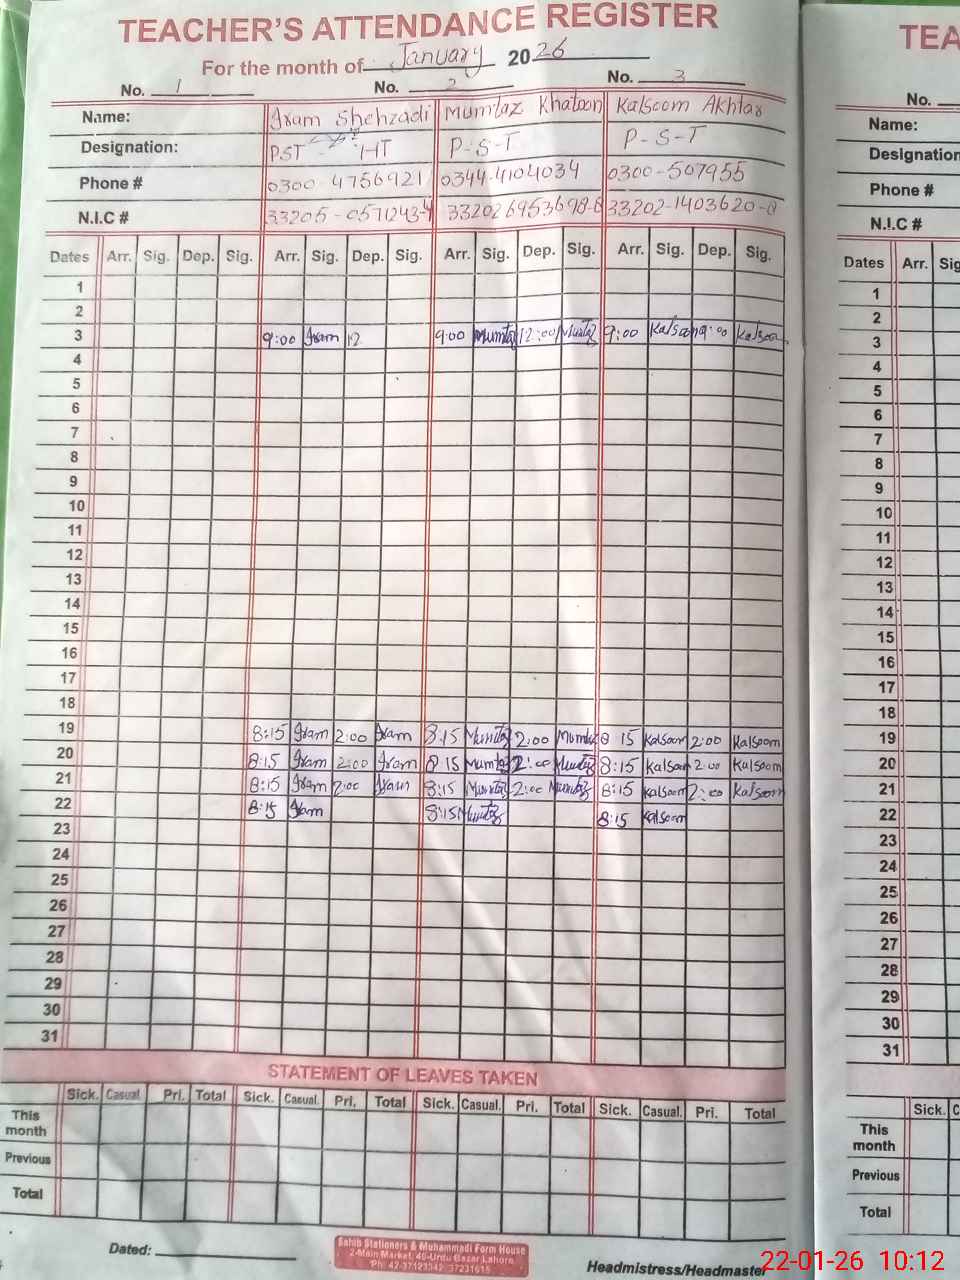 TEACHER'S ATTENDANCE REGISTER
For the month of January 2026
No. 1 No. 2 No. 3
Name: Iram Shehzadi Mumtaz Khatoon Kalsoom Akhtar
Designation: PST HT P-S-T P-S-T
Phone # 0300-4756921 0344-4104034 0300-507955
N.I.C # 33205-0571243-4 332026953698-8 33202-1403620-8
Dates Arr. Sig. Dep. Sig. Arr. Sig. Dep. Sig. Arr. Sig. Dep. Sig. Arr. Sig. Dep. Sig.
1
2
3 9:00 Iram 12 9:00 Mumtaz 12:00 Mumtaz 9:00 Kalsoom Kalsoom
4
5
6
7
8
9
10
11
12
13
14
15
16
17
18
19 8:15 Iram 2:00 Iram 8:15 Mumtaz 2:00 Mumtaz 8 15 Kalsoom 2:00 Kalsoom
20 8:15 Iram 2:00 Iram 8 15 Mumtaz 2:00 Mumtaz 8:15 Kalsoom 2:00 Kalsoom
21 8:15 Iram 2:00 Iram 8:15 Mumtaz 2:00 Mumtaz 8:15 Kalsoom 2:00 Kalsoom
22 8:15 Iram 8:15 Mumtaz 8:15 Kalsoom
23
24
25
26
27
28
29
30
31
STATEMENT OF LEAVES TAKEN
Sick. Casual. Pri. Total Sick. Casual. Pri. Total Sick. Casual. Pri. Total Sick. Casual. Pri. Total
This month
Previous
Total
Dated:
Sahib Stationers & Muhammadi Form House
2-Main Market, 40-Urdu Bazar Lahore.
Ph: 42-37123342, 37231615
Headmistress/Headmaster
TEA
No.
Name:
Designation
Phone #
N.I.C #
Dates Arr. Sig
1
2
3
4
5
6
7
8
9
10
11
12
13
14
15
16
17
18
19
20
21
22
23
24
25
26
27
28
29
30
31
Sick. C
This month
Previous
Total
22-01-26 10:12